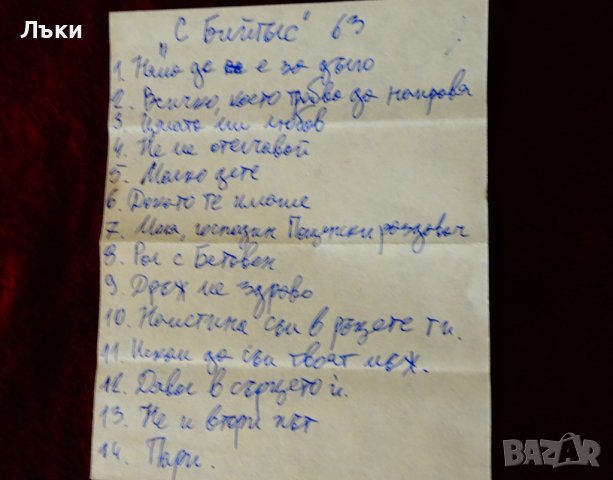 Лъки
"С Бийтълс" 63
1. Няма да е за дълго
2. Всичко, което трябва да направя
3. Цялата ми любов
4. Не ме отегчавай
5. Малко дете
6. Докато те имаше
7. Моля, господин Пощенски раздавач
8. Рол с Бетовен
9. Дръж ме здраво
10. Наистина съм в ръцете ти.
11. Искам да съм твоят мъж.
12. Дявол в сърцето ѝ.
13. Не и втори път
14. Пари.
BAZAR